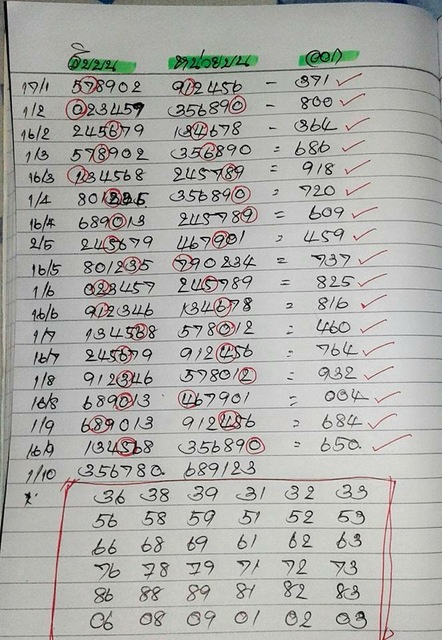 สิบบน หน่วยบน ออก
17/1 578902 912456 - 371 ✓
1/2 023459 356890 - 800 ✓
16/2 245679 134678 - 364 ✓
1/3 578902 356890 = 686 ✓
16/3 134568 245789 = 918 ✓
1/4 801235 356890 = 720 ✓
16/4 689013 245789 = 609 ✓
2/5 245679 467901 = 459 ✓
16/5 801235 790234 = 737 ✓
1/6 023457 245789 = 825 ✓
16/6 912346 134678 = 816 ✓
1/7 134568 578012 = 460 ✓
16/7 245679 912456 = 764 ✓
1/8 912346 578012 = 932 ✓
16/8 689013 467901 = 004 ✓
1/9 689013 912456 = 684 ✓
16/9 134568 356890 = 650 ✓
1/10 356780 689123
36 38 39 31 32 33
56 58 59 51 52 53
66 68 69 61 62 63
76 78 79 71 72 73
86 88 89 81 82 83
06 08 09 01 02 03